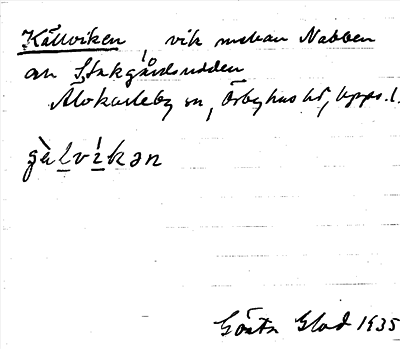 Källviken, vik mellan Nabben
och Stakgårdsudden
Älvkarleby sn, Örbyhus hd, Upps. l.
gälvikən
Gösta Glad 1935